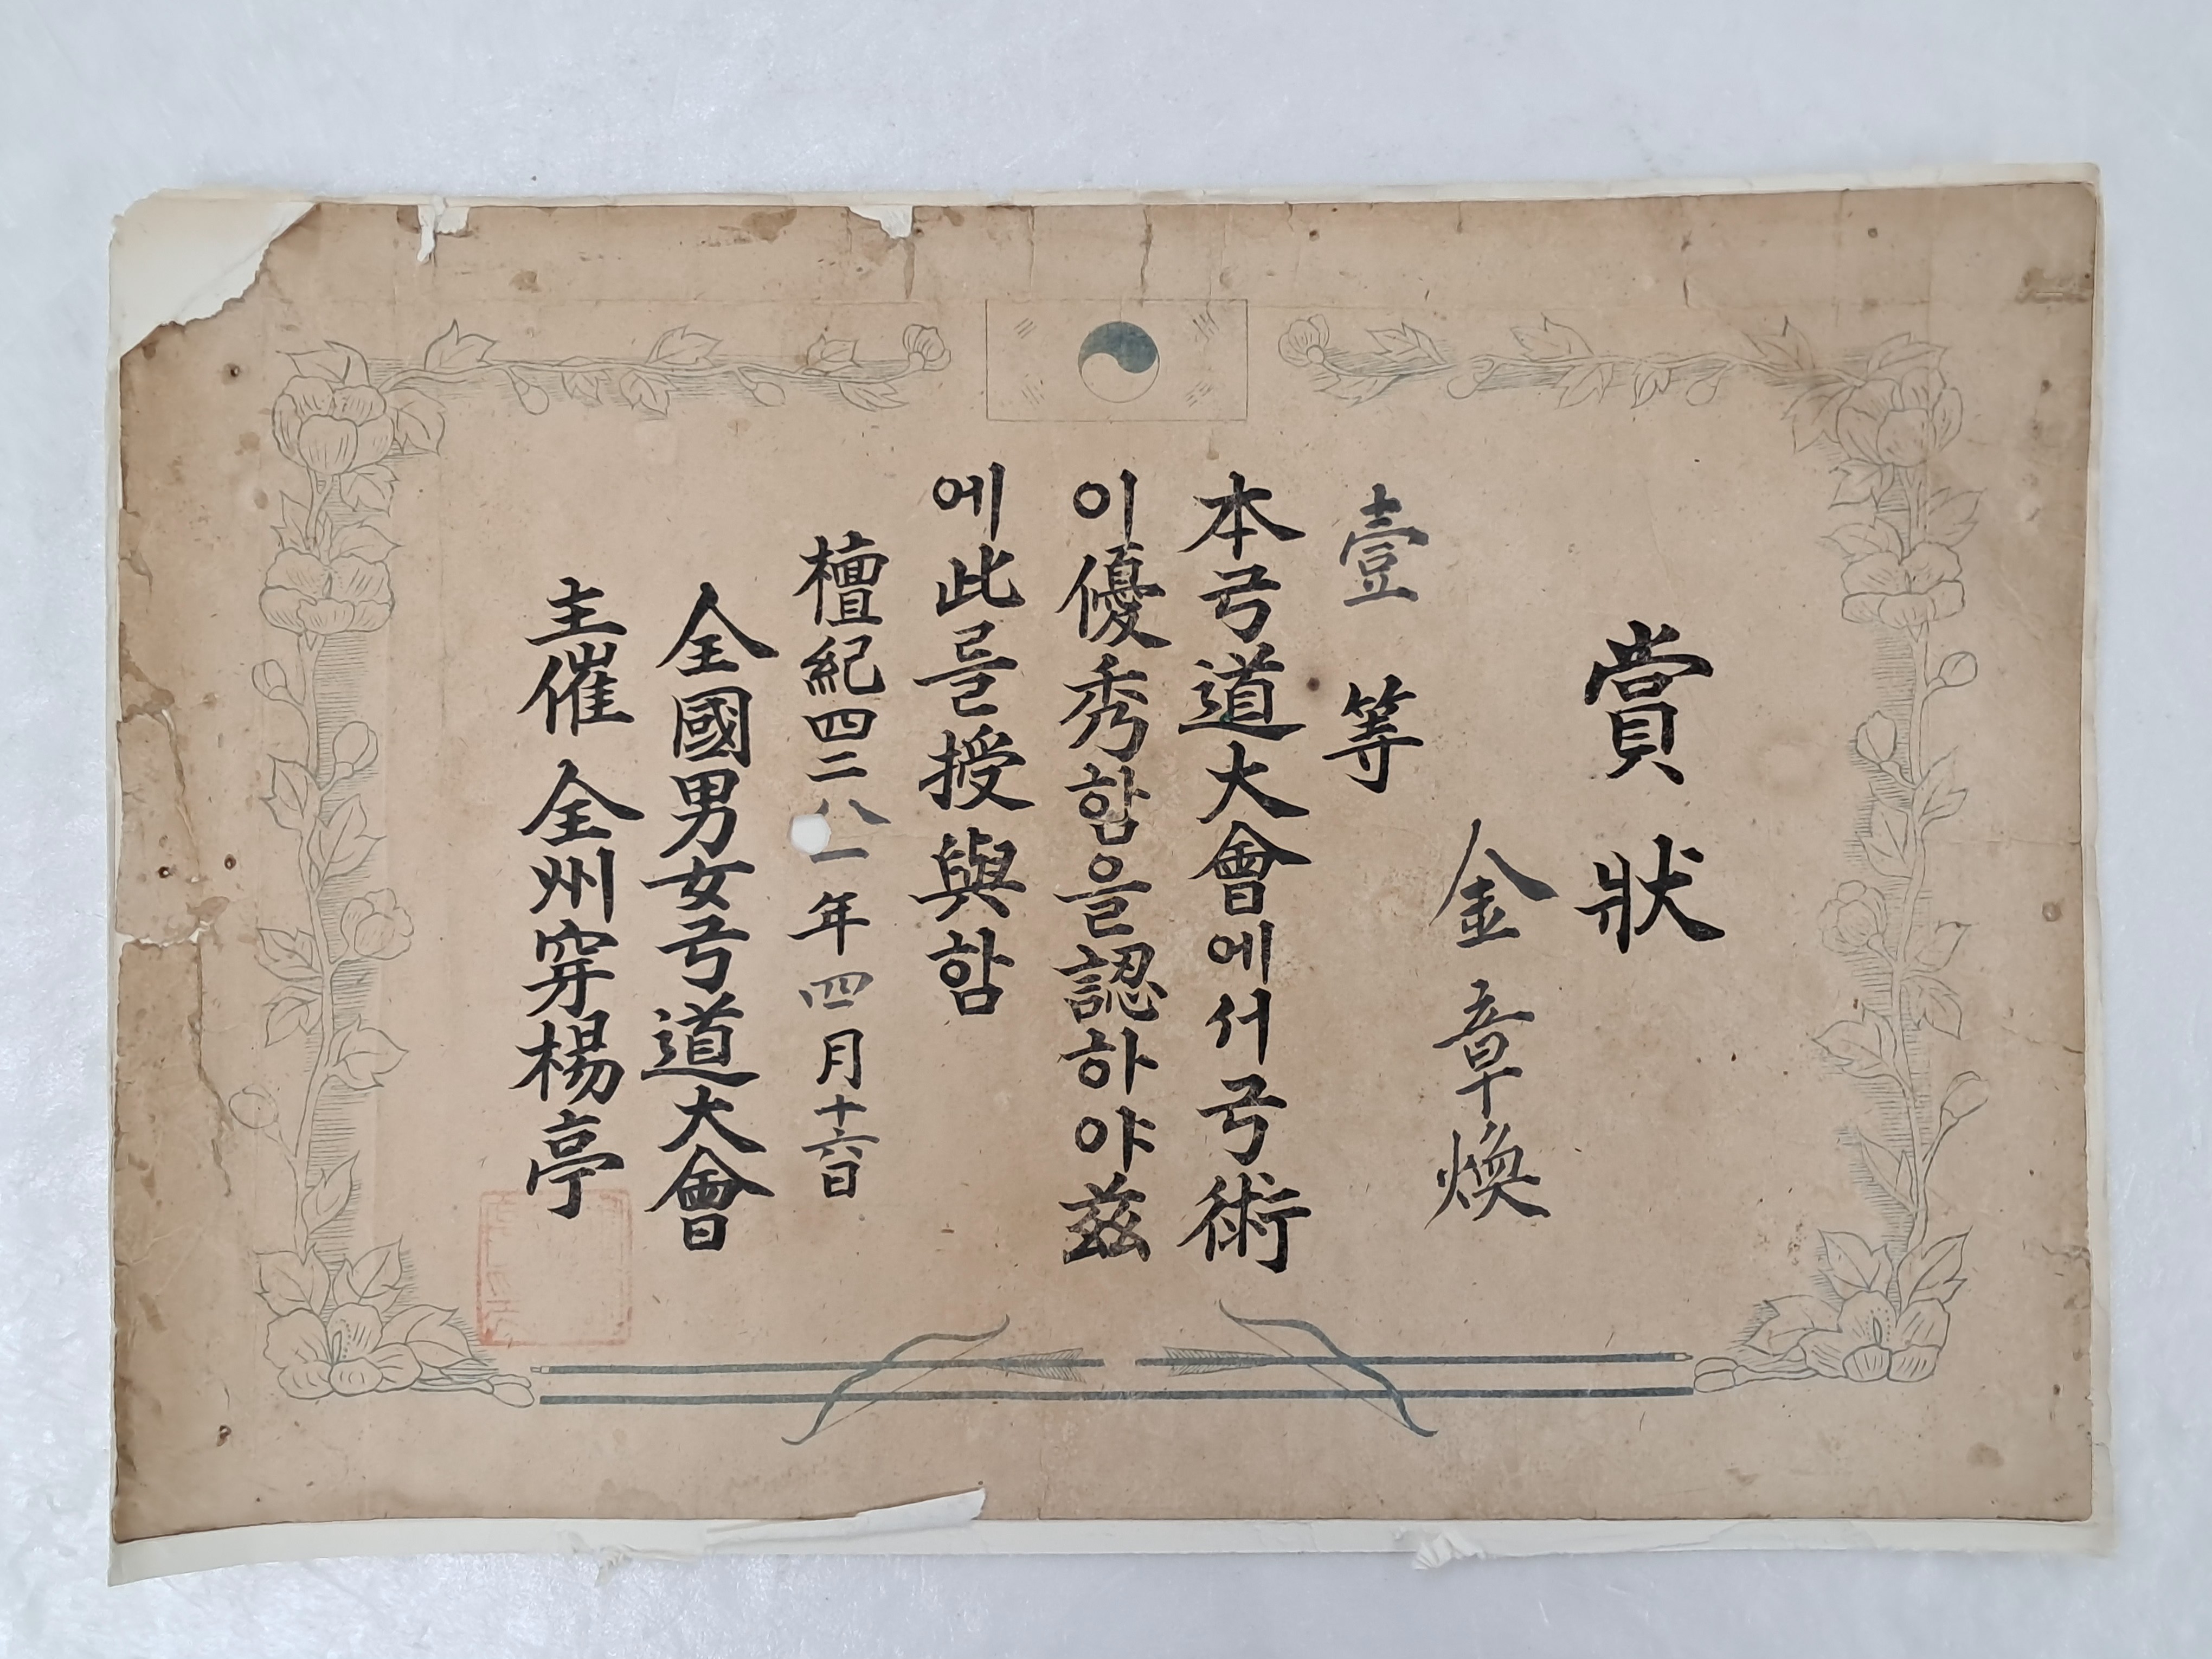 賞狀
金章煥
壹等
本弓道大會에서弓術
이優秀함을認하야玆
에此를授與함
檀紀四二八一年四月十六日
全國男女弓道大會
主催 全州穿楊亭